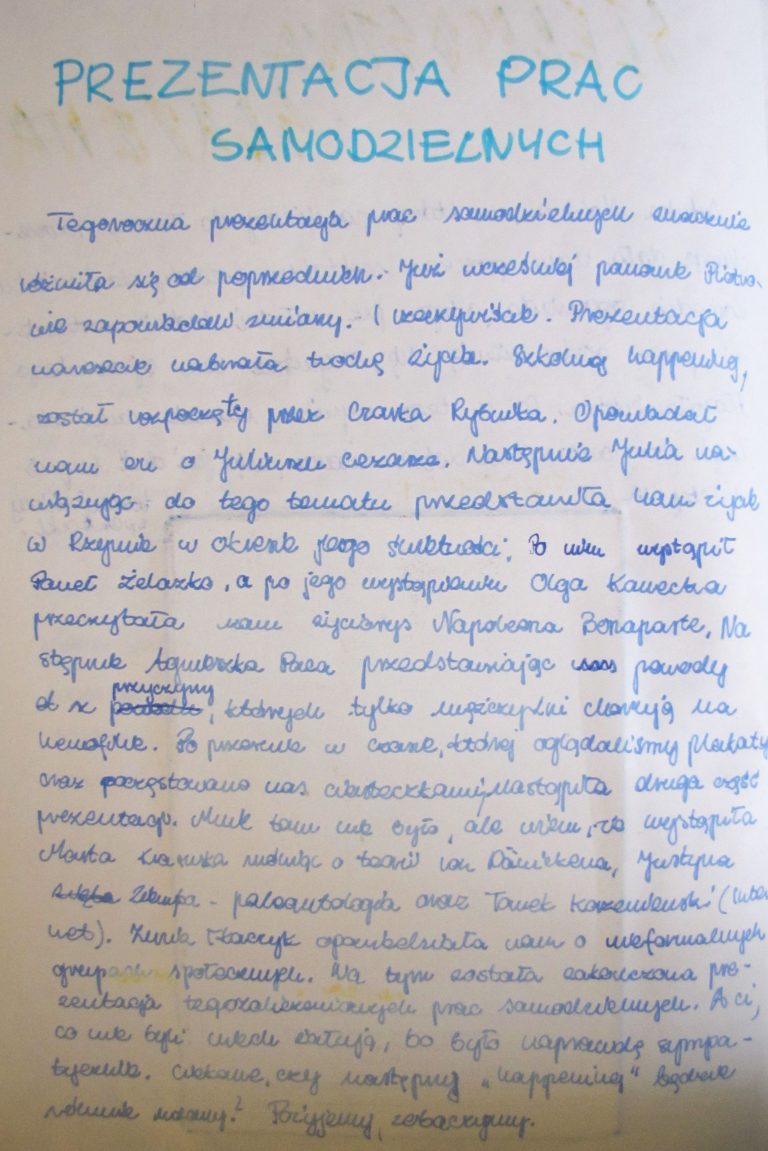 PREZENTACJA PRAC
SAMODZIELNYCH
Tegoroczna prezentacja prac samodzielnych znacznie
różniła się od poprzednich. Już wcześniej panowie Piotro-
wie zapowiadali zmiany. I rzeczywiście. Prezentacja
nareszcie nabrała trochę życia. Szkolny happening,
został rozpoczęty przez Czarka Rybutka. Opowiadał
nam on o Juliuszu Cezarze. Następnie Julia na-
wiązując do tego tematu przedstawiła nam życie
w Rzymie w okresie jego świetności. Po niej wystąpił
Paweł Żelazko, a po jego wystąpieniu Olga Kawecka
przeczytała nam życiorys Napoleona Bonaparte. Na
stępnie Agnieszka Paca przedstawiając nam powody
przyczyny
, których tylko mężczyźni chorują na
hemofilie. Po przerwie w czasie, której oglądaliśmy plakaty
oraz poczęstowano nas ciasteczkami, nastąpiła druga część
prezentacji. Mnie tam nie było, ale wiem, że wystąpiła
Marta mówiąc o teorii von Dänikena, Justyna
- paleontologia oraz Tomek (Inter
net). Zuzia Tkaczyk opowiedziała nam o nieformalnych
grupach społecznych. Na tym została zakończona pre-
zentacja prac samodzielnych. A ci,
co nie byli niech żałują, bo było naprawdę sympa-
tycznie. Ciekawe, czy następny „happening" będzie
równie udany? Pożyjemy, zobaczymy.